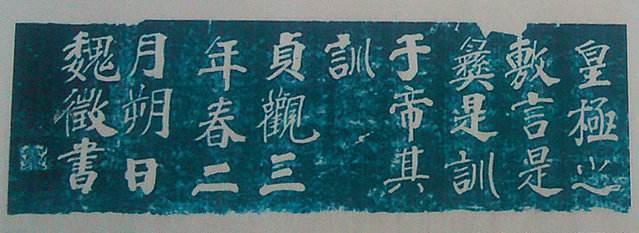 皇極之
敷言是
彝是訓
于帝其
訓
貞觀三
年春二
月朔日
魏徵書